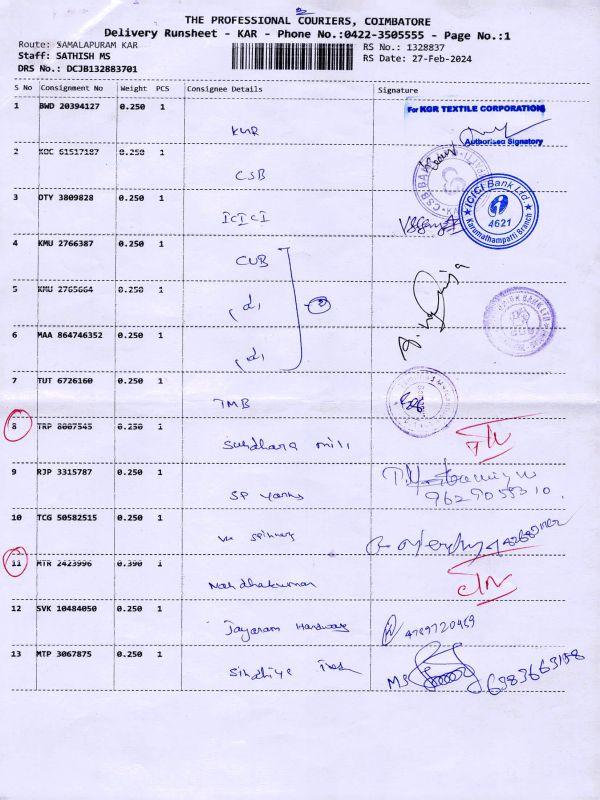 THE PROFESSIONAL COURIERS, COIMBATORE
Delivery Runsheet - KAR - Phone No.:0422-3505555 - Page No.:1
Route: SAMALAPURAM KAR
RS No.: 1328837
Staff: SATHISH MS
RS Date: 27-Feb-2024
DRS No.: DCJB132883701
S No Consignment No Weight PCS Consignee Details Signature
1 BWD 20394127 0.250 1
For KGR TEXTILE CORPORATION
KGR
Authorised Signatory
2 KDC 61517187 0.250 1
CSB
3 DTY 3809828 0.250 1
ICICI
ICICI Bank Ltd
4621
Karumathampatti Branch
4 KMU 2766387 0.250 1
CUB
5 KMU 2765664 0.250 1
6 MAA 864746352 0.250 1
7 TUT 6726160 0.250 1
TMB
8 TRP 8007545 0.250 1
Sundhara mill
9 RJP 3315787 0.250 1
SP yarns
9629055310
10 TCG 50582515 0.250 1
spinners
11 MTR 2423996 0.390 1
Nandhakumar
12 SVK 10484050 0.250 1
Jayaram Hardware
13 MTP 3067875 0.250 1
MS
6383663158